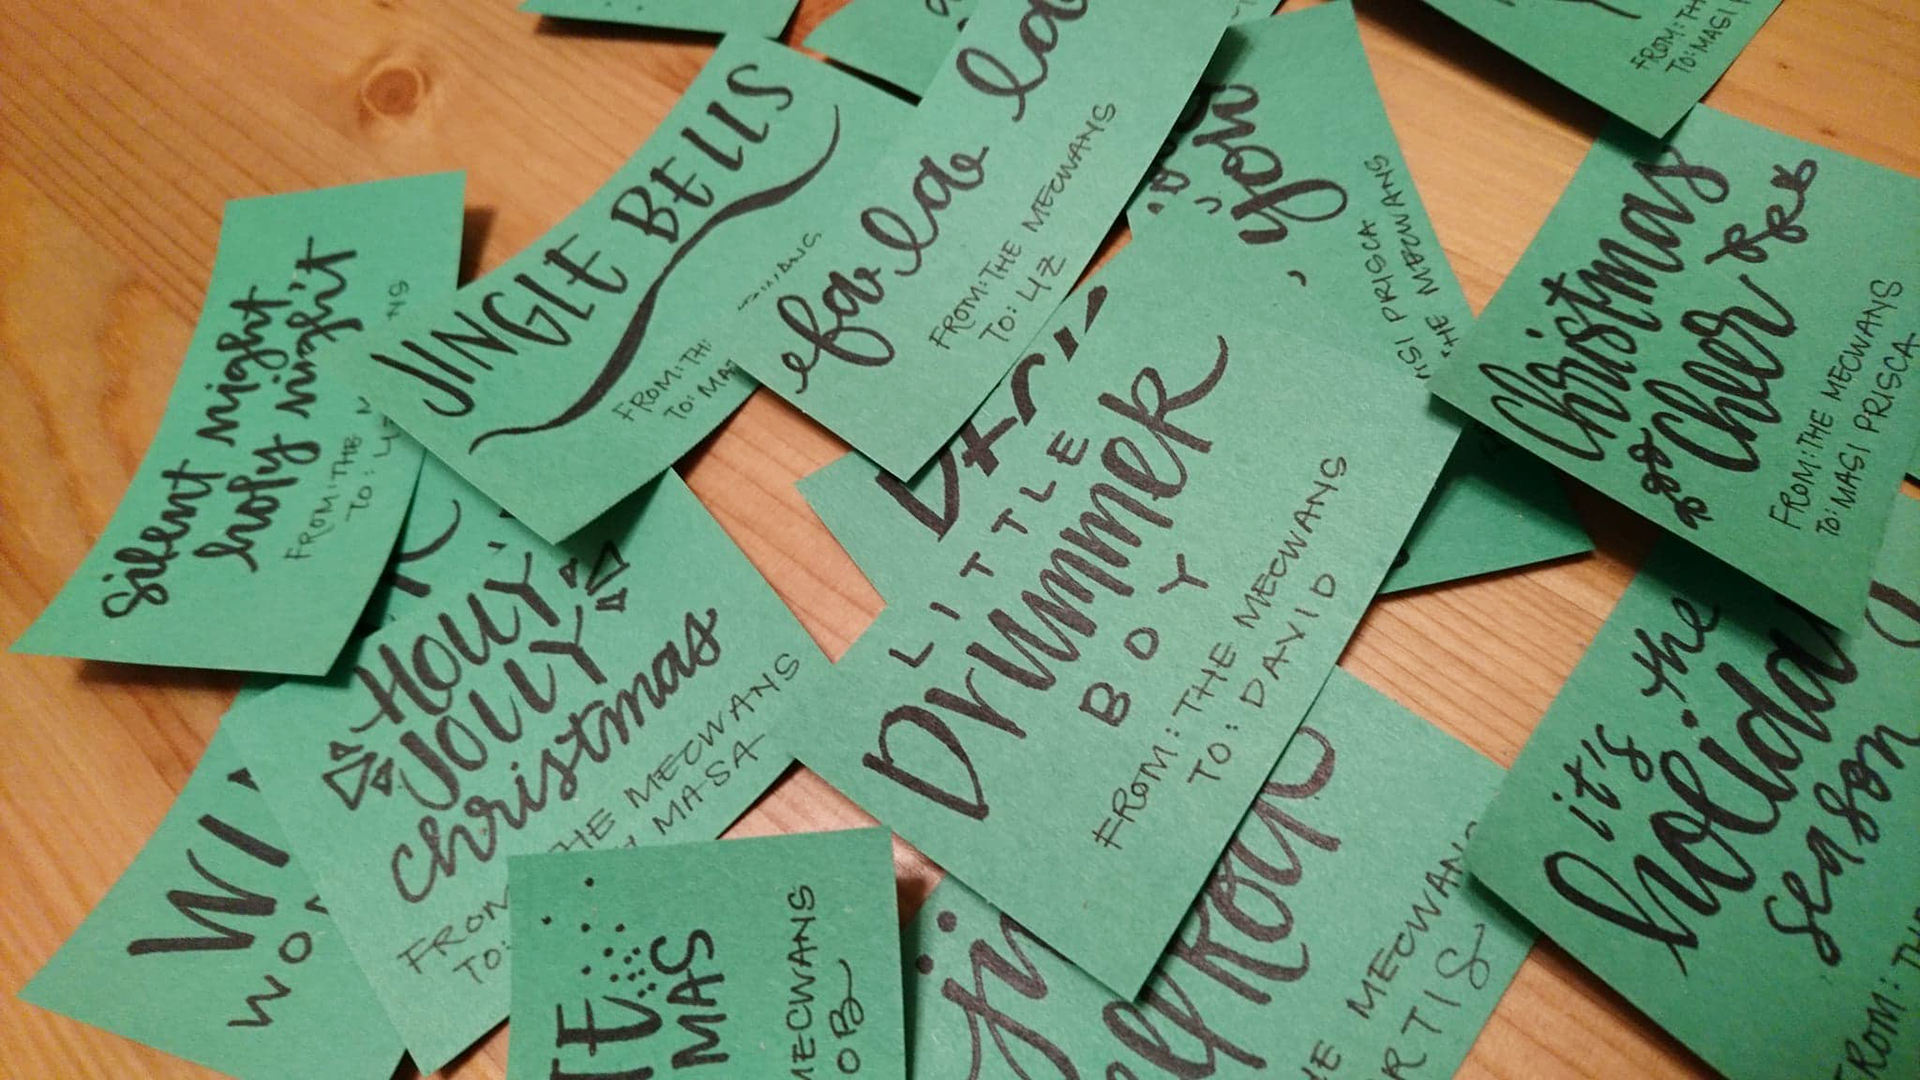 FROM: THE
TO: MASI
Silent night,
holy night
FROM: THE
TO: LIZ
JINGLE BELLS
FROM: TH
TO: MA
fa la la
FROM: THE MECWANS
TO: LIZ
you
MASI PRISCA
THE MECWANS
Christmas
Cheer
FROM: THE MECWANS
TO: MASI PRISCA
LITTLE
Drummer
BOY
FROM: THE MECWANS
TO: DAVID
HOLLY
JOLLY
Christmas
FROM THE MECWANS
TO: MASA
it's the
holiday
season
FROM: THE
WI
WO
TE
MAS
MECWANS
OB
ji
ell rock
THE MECWANS
RTIS